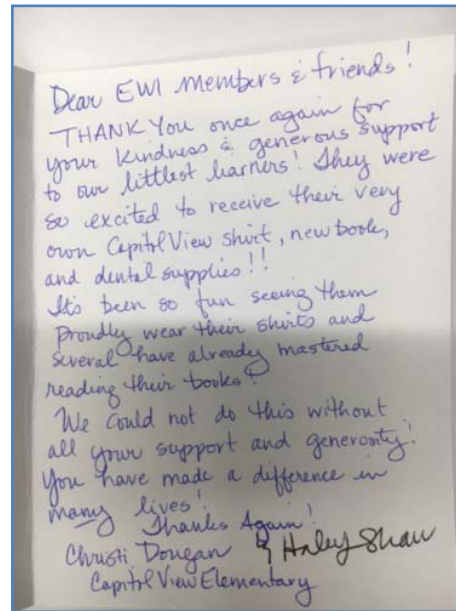 Dear EWI members & friends!
THANK You once again for
your kindness & generous support
to our littlest learners! They were
so excited to receive their very
own Capitol View shirt, new book,
and dental supplies!!
It's been so fun seeing them
proudly wear their shirts and
several have already mastered
reading their books!
We could not do this without
all your support and generosity!
You have made a difference in
many lives!
Thanks Again!
Christi Dongan & Haley Shaw
Capitol View Elementary